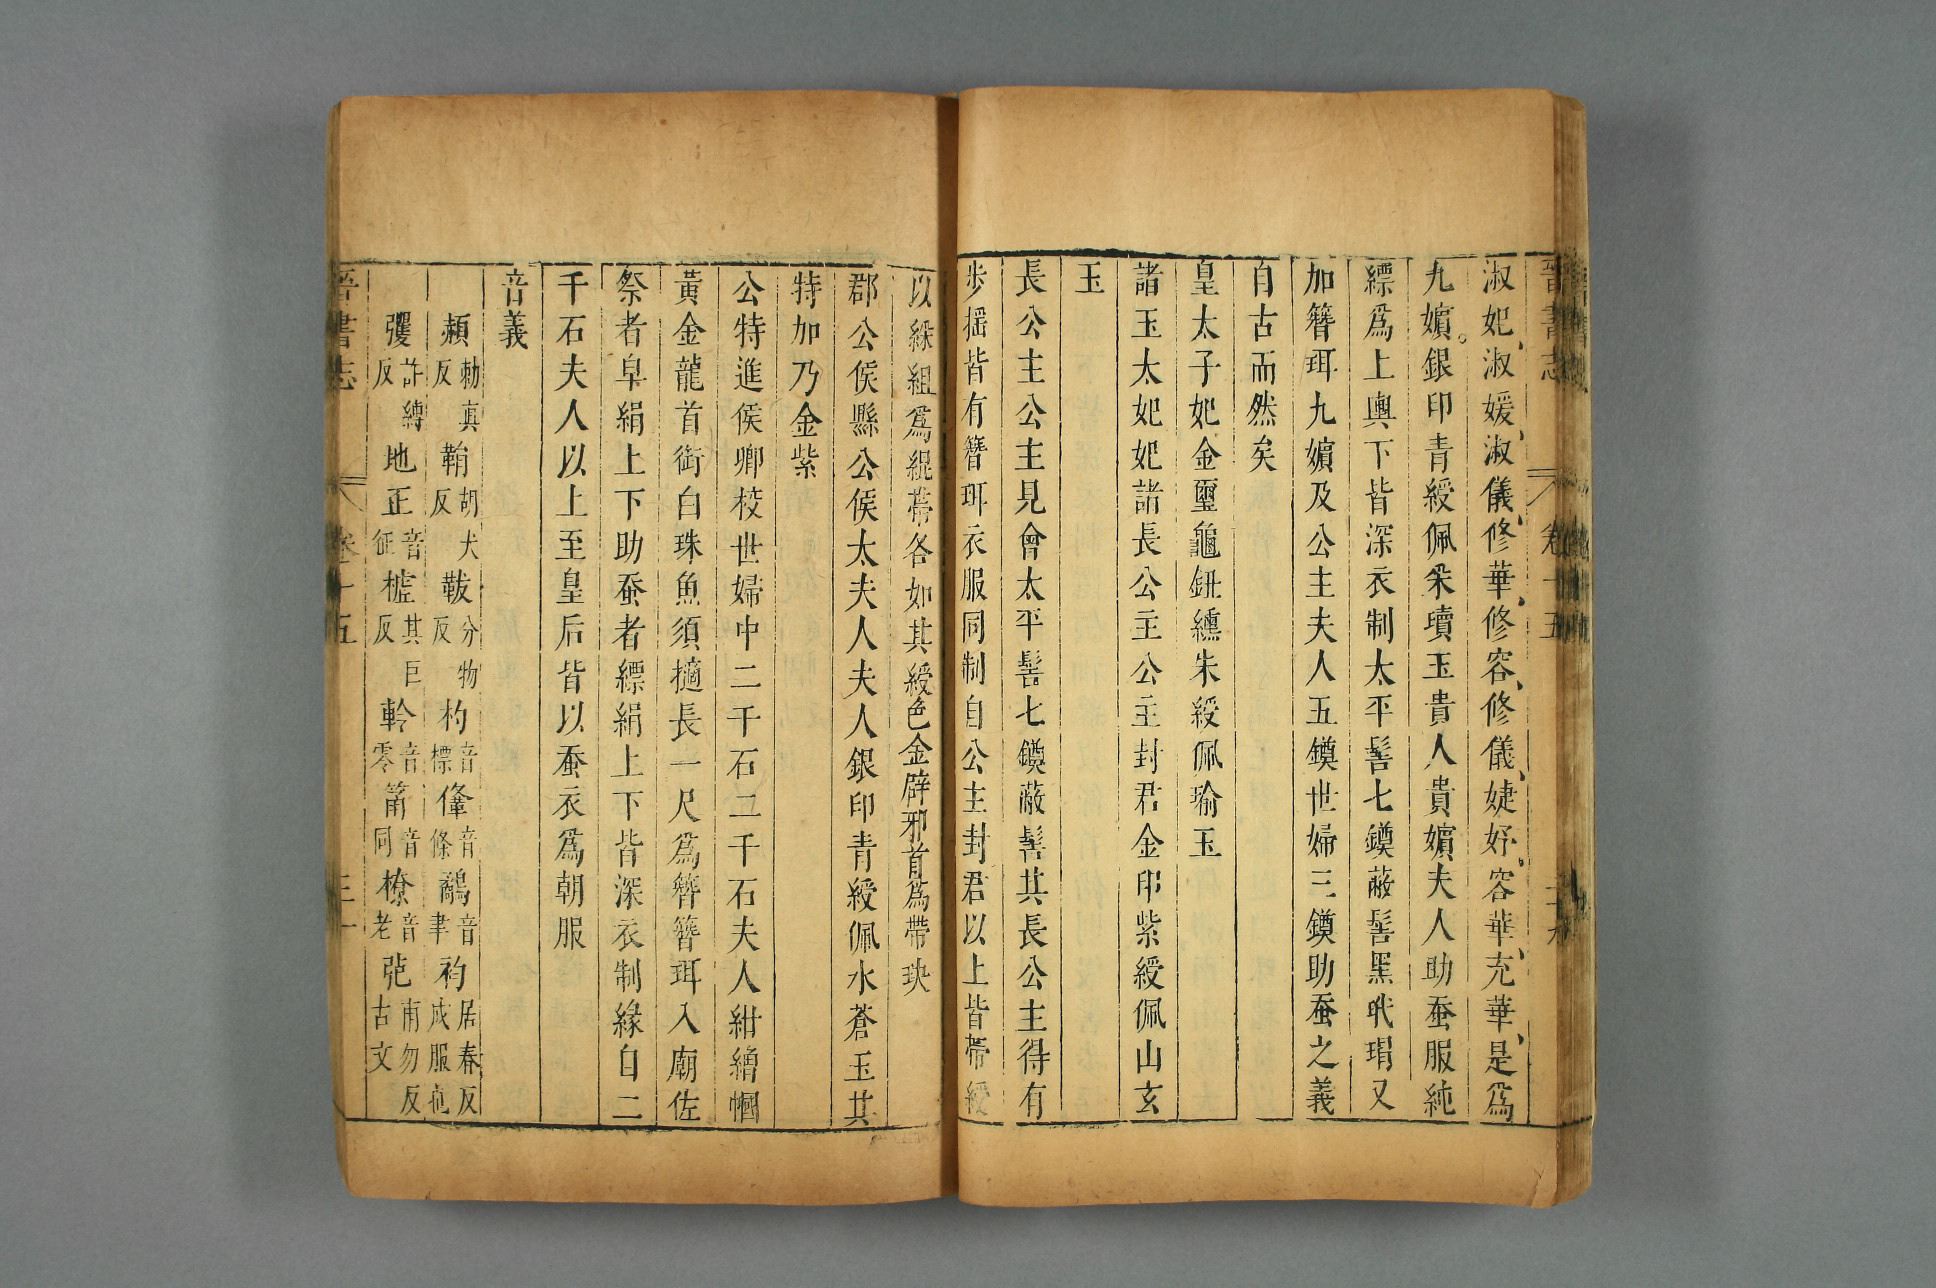 晉書志 卷十五
淑妃、淑媛、淑儀、修華、修容、修儀、婕妤、容華、充華、是爲
九嬪。銀印青綬佩采瓄玉貴人貴嬪夫人助蚕服純
縹爲上輿下皆深衣制太平髻七鐷蔽髻黑玳瑁又
加簪珥九嬪及公主夫人五鐷世婦三鐷助蚕之義
自古而然矣
皇太子妃金璽龜鈕纁朱綬佩瑜玉
諸王太妃妃諸長公主公主封君金印紫綬佩山玄
玉
長公主公主見會太平髻七鐷蔽髻其長公主得有
步搖皆有簪珥衣服同制自公主封君以上皆帶綬
以綵組爲緄帶各如其綬色金辟邪首爲帶玦
郡公侯縣公侯太夫人夫人銀印青綬佩水蒼玉其
特加乃金紫
公特進侯卿校世婦中二千石二千石夫人紺繒幗
黃金龍首銜白珠魚須擿長一尺爲簪簪珥入廟佐
祭者皁絹上下助蚕者縹絹上下皆深衣制緣自二
千石夫人以上至皇后皆以蚕衣爲朝服
音義
頳勅真反 鞙胡犬反 韍分物反 杓音標 鞗音條 鷸音聿 袀居春反戎服也
彏許縛反 地 正音征 櫨其巨反 軨音零 筩音同 橑音老 㢮甫勿反古文
晉書志 卷十五 三十